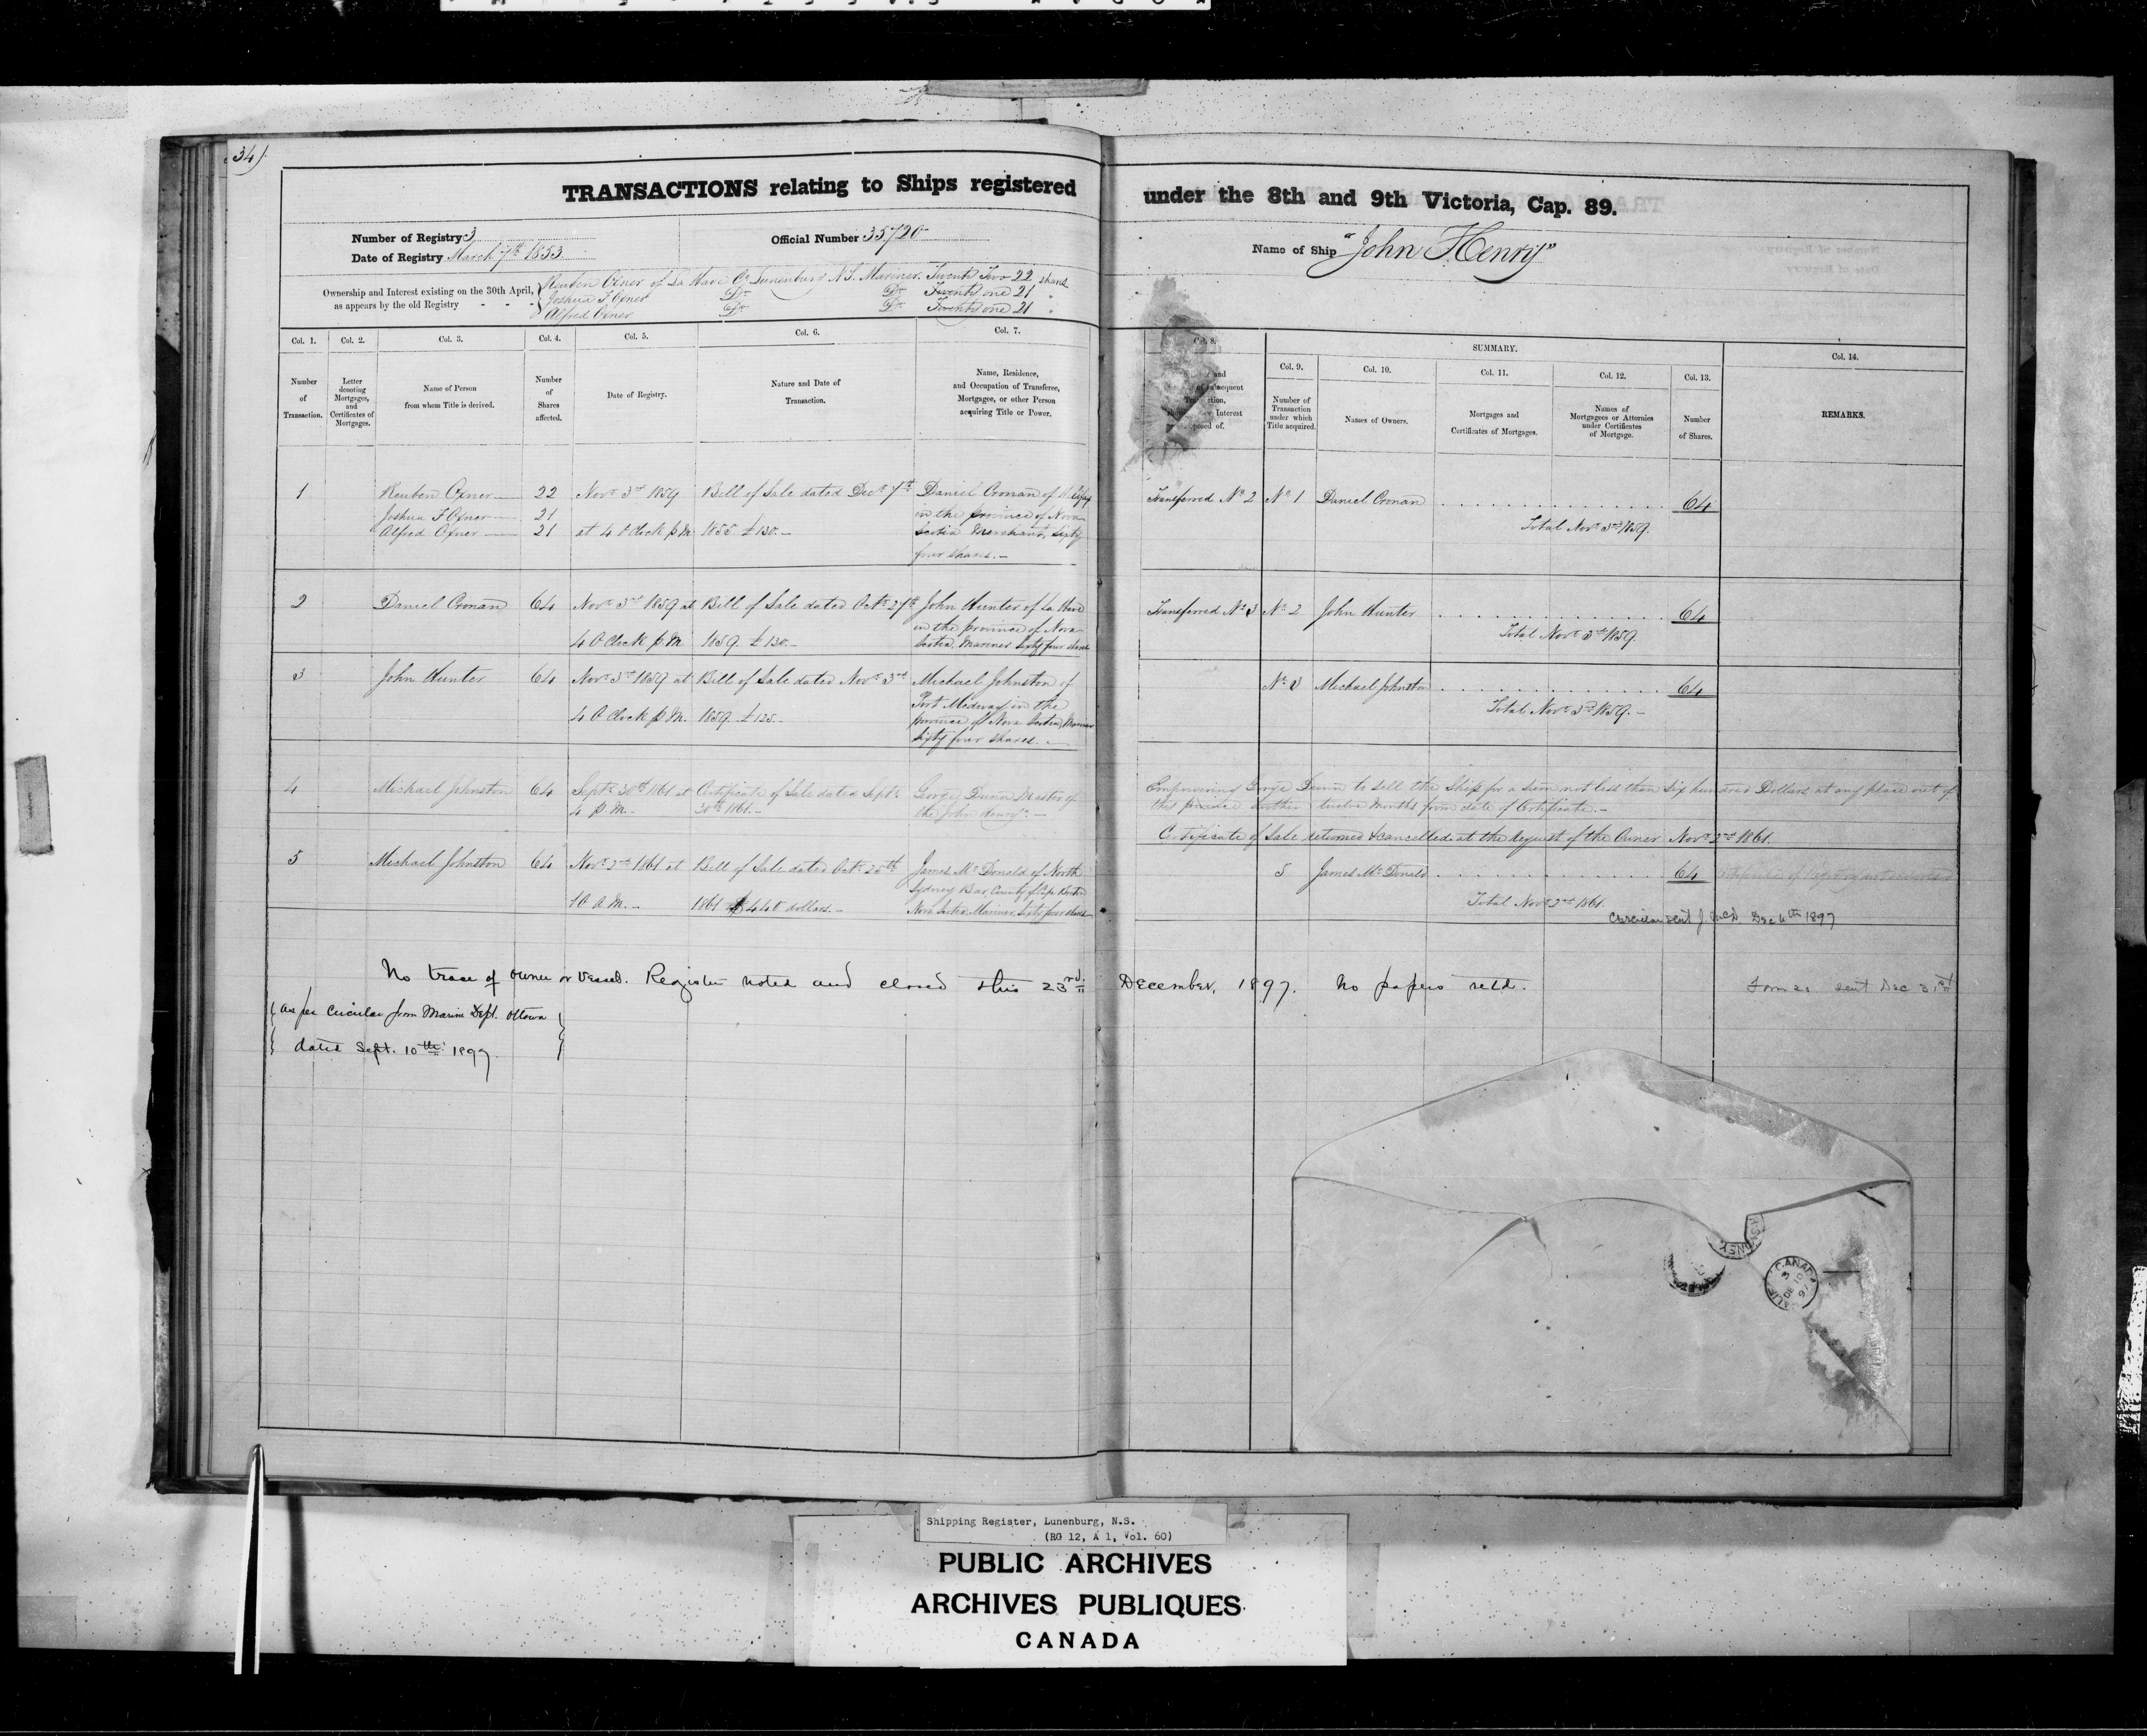 34)
TRANSACTIONS relating to Ships registered under the 8th and 9th Victoria, Cap. 89.
Number of Registry 3
Date of Registry March 7th 1853
Official Number 35720
Name of Ship "John Henry"
Ownership and Interest existing on the 30th April, as appears by the old Registry
Reuben Oxner of La Have Co Lunenburg N.S. Mariner. Twenty Two 22 shares
Joshua F Oxner Do Do Twenty one 21 "
& Alfred Oxner Do Do Twenty one 21 "
Col. 1. Col. 2. Col. 3. Col. 4. Col. 5. Col. 6. Col. 7. Col. 8. SUMMARY. Col. 14.
Col. 9. Col. 10. Col. 11. Col. 12. Col. 13.
Number of Transaction.
Letter denoting Mortgages, and Certificates of Mortgages.
Name of Person from whom Title is derived.
Number of Shares affected.
Date of Registry.
Nature and Date of Transaction.
Name, Residence, and Occupation of Transferee, Mortgagee, or other Person acquiring Title or Power.
and subsequent Interest of.
Number of Transaction under which Title acquired.
Names of Owners.
Mortgages and Certificates of Mortgages.
Names of Mortgagees or Attornies under Certificates of Mortgage.
Number of Shares.
REMARKS.
1 Reuben Oxner 22 Novr 3rd 1859 Bill of Sale dated Decr 7th Daniel Cronan of Halifax Transferred No 2 No 1 Daniel Cronan 64
Joshua F Oxner 21 in the province of Nova Total Novr 3rd 1859.
Alfred Oxner 21 at 4 O'Clock p.M. 1855 £130.- Scotia Merchant, Sixty
four shares.-
2 Daniel Cronan 64 Novr 3rd 1859 at Bill of Sale dated Octr 27th John Hunter of La Have Transferred No 3 No 2 John Hunter 64
in the province of Nova Total Novr 3rd 1859.
4 O Clock p.M. 1859. £130.- Scotia, Mariner Sixty four shares
3 John Hunter 64 Novr 3rd 1859 at Bill of Sale dated Novr 3rd Michael Johnston of No 3 Michael Johnston 64
Port Medway in the Total Novr 3rd 1859.-
4 O Clock p.M. 1859. £125.- province of Nova Scotia, Mariner
Sixty four shares.-
4 Michael Johnston 64 Septr 30th 1861 at Certificate of Sale dated Septr George Dunn Master of Empowering George Dunn to sell the Ship for a sum not less than Six hundred Dollars at any place out of
4 P.M.- 30th 1861.- the "John Henry".- this province twelve months from date of Certificate.-
Certificate of Sale returned & cancelled at the request of the Owner Novr 2nd 1861.
5 Michael Johnston 64 Novr 2nd 1861 at Bill of Sale dated Octr 25th James McDonald of North 5 James McDonald 64
Sydney Bar, County of Cape Breton
10 A.M.- 1861 $440 dollars.- Nova Scotia Mariner, Sixty four shares Total Novr 2nd 1861
Circular sent J. McD. Dec 6th 1897
No trace of owner or vessel. Register noted and closed this 23rd December, 1897. No papers retd. Form 20 sent Dec 31st
{as per circular from Marine Dept. Ottawa
dated Sept. 10th 1897.}
CANADA
DE 10
97
Shipping Register, Lunenburg, N.S.
(RG 12, A 1, Vol. 60)
PUBLIC ARCHIVES
ARCHIVES PUBLIQUES
CANADA